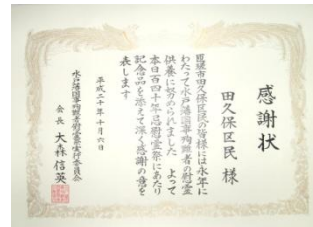 感謝状
田久保区民 様
匝瑳市田久保区民の皆様には永年に
わたって水戸藩国事殉難者の慰霊
供養に努められました よって
本日百四十年忌慰霊祭にあたり
記念品を添えて深く感謝の意を
表します
平成二十年十月六日
水戸藩国事殉難者慰霊祭実行委員会
会長 大森信英